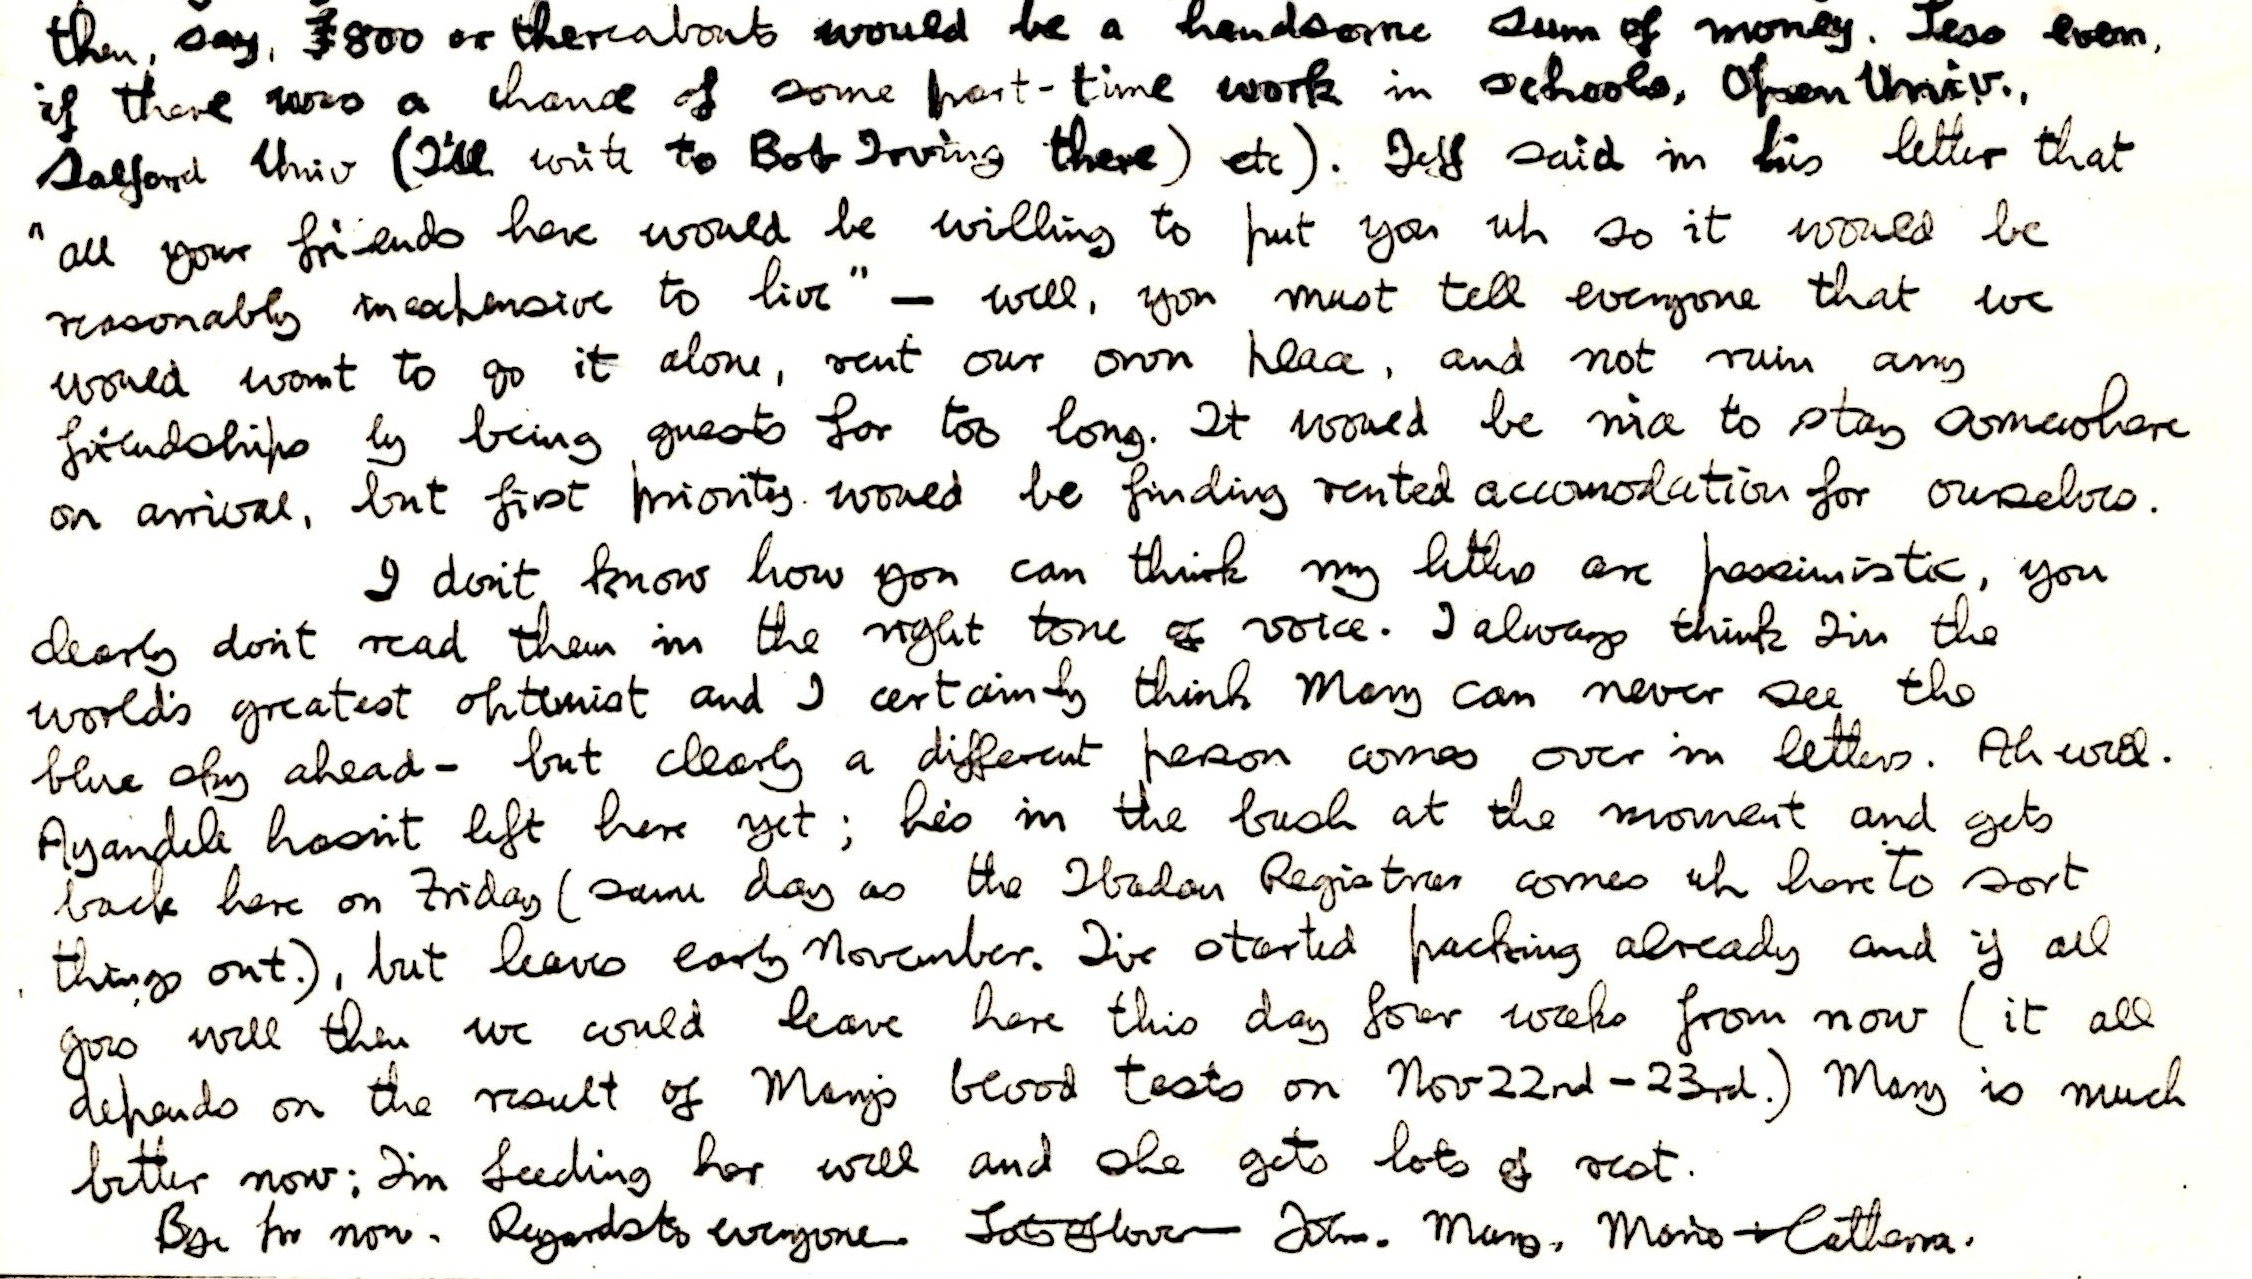 then, say, £800 or thereabouts would be a handsome sum of money. Less even,
if there was a chance of some part-time work in schools, Open Univ.,
Salford Univ (I'll write to Bob Irving there) etc). Jeff said in his letter that
"all your friends here would be willing to put you up so it would be
reasonably inexpensive to live" — well, you must tell everyone that we
would want to go it alone, rent our own place, and not ruin any
friendships by being guests for too long. It would be nice to stay somewhere
on arrival, but first priority would be finding rented accomodation for ourselves.
I don't know how you can think my letters are pessimistic, you
clearly don't read them in the right tone of voice. I always think I'm the
world's greatest optimist and I certainly think Mary can never see the
blue sky ahead - but clearly a different person comes over in letters. Ah well.
Ayandele hasn't left here yet; he's in the bush at the moment and gets
back here on Friday (same day as the Ibadan Registrar comes up here to sort
things out.), but leaves early November. I've started packing already and if all
goes well then we could leave here this day four weeks from now (it all
depends on the result of Mary's blood tests on Nov 22nd - 23rd.) Mary is much
better now; I'm feeding her well and she gets lots of rest.
Bye for now. Regards to everyone. Lots of love John. Mary,